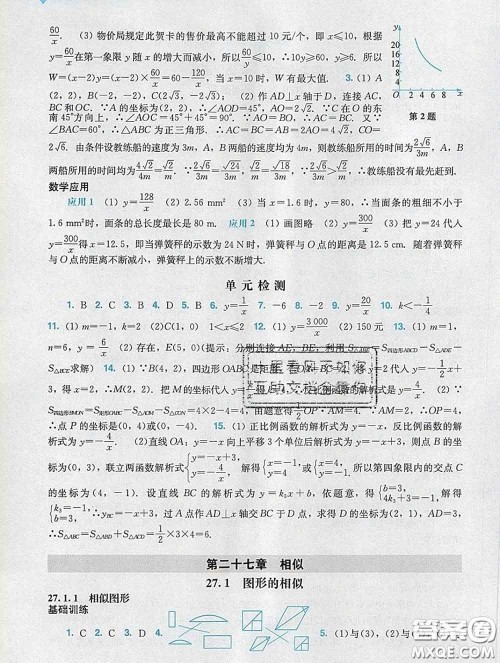 60/x. (3) 物价局规定此贺卡的售价最高不能超过 10 元/个，即 x⩽10，根据
y=60/x 在第一象限 y 随 x 的增大而减小，所以 60/x⩽10，∴10y⩾60，y⩾6. 所以
W=(x−2)·y=(x−2)·60/x=60−120/x，当 x=10 时，W 有最大值. 3. (1) A
(2，2)，B(−2，−2)，C(2√3，−2√3)； (2) 作AD⊥x 轴于 D，连接 AC，
BC 和 OC. ∵A 的坐标为(2，2)，∴∠AOD=45°，AO=2√2. ∵C 在 O 的东
南 45°方向上，∴∠AOC=45°+45°=90°. ∵AO=BO，∴AC=BC. 又∵
∠BAC=60°，∴△ABC 为正三角形. ∴AC=BC=AB=2AO=4√2. ∴OC=
2√6. 由条件设教练船的速度为 3m，A，B 两船的速度均为 4m，则教练船所用的时间为 2√6/3m，A，B
两船所用的时间均为 4√2/4m=√2/m. ∵2√6/3m=√24/3m，√2/m=√18/3m，∴2√6/3m>√2/m. ∴教练船没有最先赶到.
y
20
16
12
8
4
O 2 4 6 8 x
第 2 题
数学应用
应用 1 (1) y=128/x (2) 2.56 mm² (3) x⩾1.6，y=128/x，∴y⩽80，∴当面条的粗细不小于
1.6 mm²时，面条的总长度最长是 80 m. 应用 2 (1) 画图略 (2) y=300/x (3) 把 y=24 代入
y=300/x 得 x=12.5，即当弹簧秤的示数为 24 N 时，弹簧秤与 O 点的距离是 12.5 cm. 随着弹簧秤
与 O 点的距离不断减小，弹簧秤上的示数不断增大.
单元检测
1. B 2. C 3. B 4. D 5. B 6. y=1/x 7. −6 8. −2 9. y=20/x 10. k<−1/4
11. (1) m=−1，k=2 (2) C(1，0) 1<x⩽2 12. (1) y=3 000/x (2) 150 元 13. (1) m=1，
n=6，y=6/x (2) 存在，E(5，0) (提示：分别连接 AE，BE，利用 S
求解) 14. (1) ∵B(4，2)，四边形 OABC 是矩形
3，得 x=2，∴M(2，2). 把 M 的坐标代入
S四边形BMON=S矩形OABC−S△AOM−S△CON=4×2−4=4. 由题意得 1/2 OP·AM=4，∵AM=2，∴OP=4.
∴点 P 的坐标是(0，4)或(0，−4). 15. (1) 正比例函数的解析式为 y=−x，反比例函数的解
析式为 y=−4/x. (2) 直线OA：y=−x 向上平移 3 个单位后解析式为 y=−x+3，则点 B 的坐标
为(0，3)，联立两函数解析式{y=−x+3，y=−4/x，解得{x=−1，y=4 或{x=4，y=−1，所以第四象限内的交点 C
的坐标为(4，−1). 设直线 BC 的解析式为 y=k₃x+b，依题意，得{b=3，4k₃+b=−1. 解得
{k₃=−1，b=3，∴y_BC=−x+3，过点 A 作AD⊥x 轴交 BC 于 D 点，求得 D(1，2)，AD=3，
∴S△ABC=S△ABD+S△ACD=1/2×3×4=6.
第二十七章 相似
27.1 图形的相似
27.1.1 相似图形
基础训练
1. B 2. D 3. D 4. 5. (1)与(3)，(2)与
答案圈
MXQE.COM